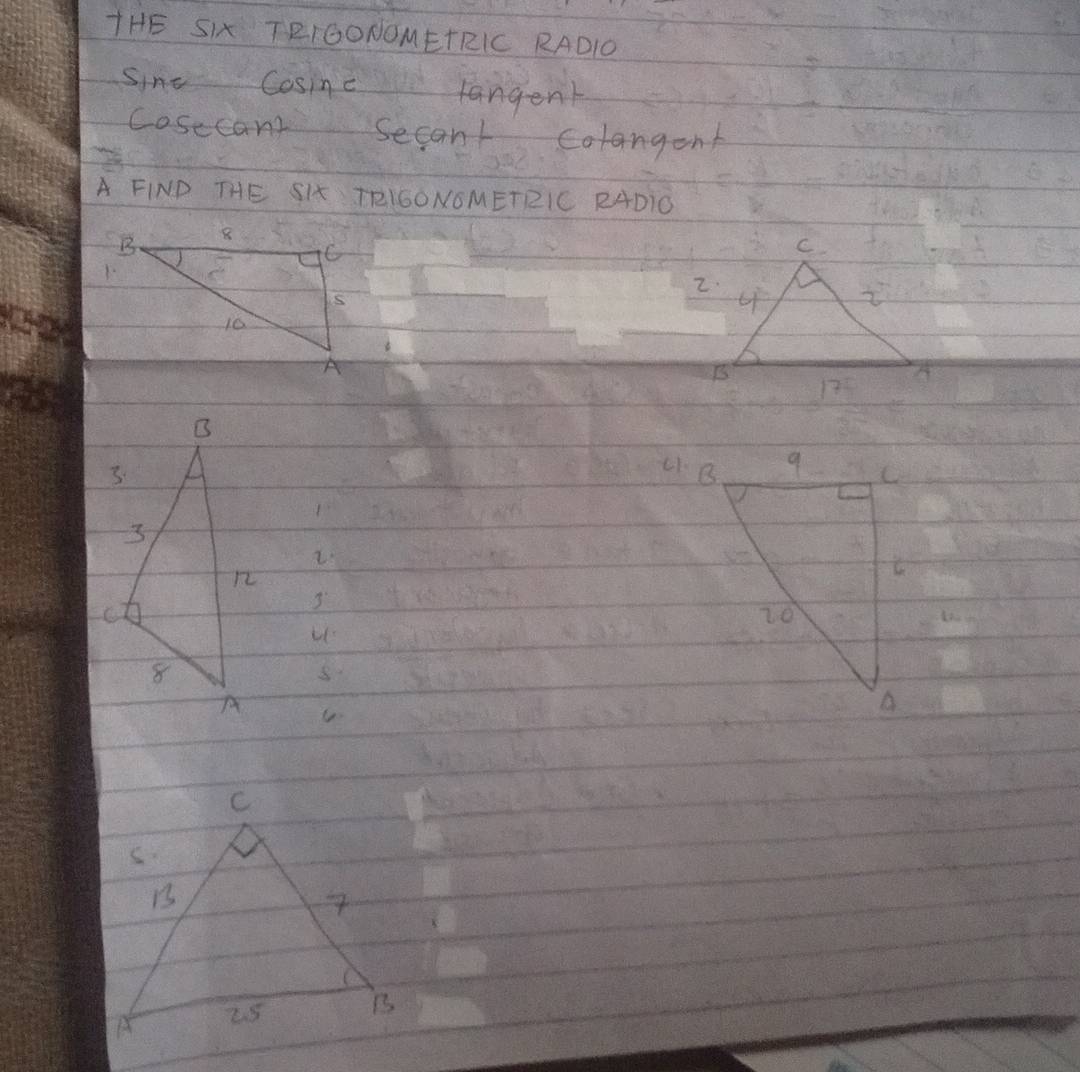 THE SIX TRIGONOMETRIC RADIO
Sine Cosine tangent
Cosecant Secant Cotangent
A FIND THE SIX TRIGONOMETRIC RADIO
1. B 8 C
5
10
A
2. C
4 2
B A
17
3. B
3
12
C
8
A
1.
2.
3.
4.
5.
6.
4. B 9 C
6
20
A
5. C
13 7
A 25 B